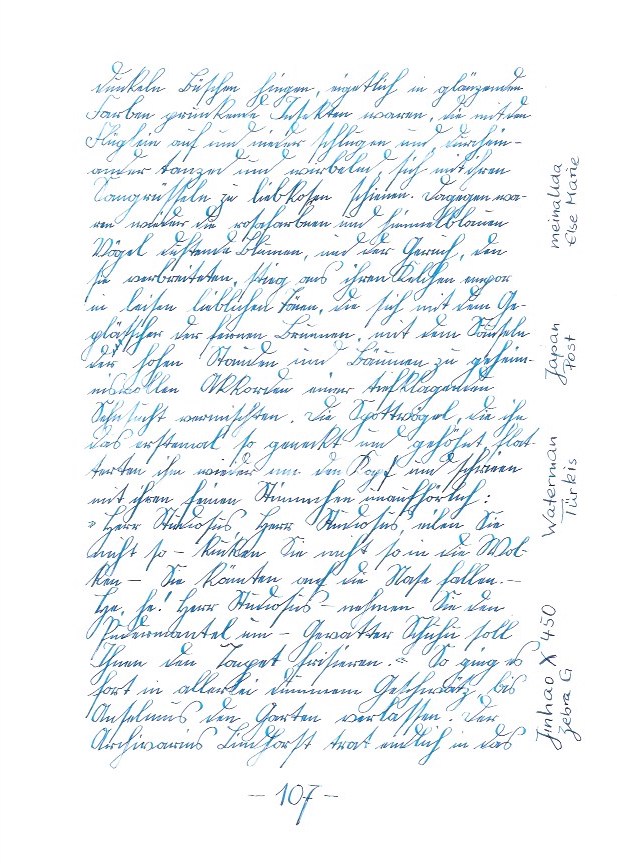 dunkeln Büschen hingen, eigentlich in glänzenden
Farben prunkende Insekten waren, die mit den
Flüglein auf und nieder schlugen und durchein-
ander tanzend und wirbelnd sich mit ihren
Saugrüsseln zu liebkosen schienen. Dagegen wa-
ren wieder die rosafarbnen und himmelblauen
Vögel duftende Blumen, und der Geruch, den
sie verbreiteten, stieg aus ihren Kelchen empor
in leisen lieblichen Tönen, die sich mit dem Ge-
plätscher der fernen Brunnen, mit dem Säuseln
der hohen Stauden und Bäumen zu geheim-
nisvollen Akkorden einer tiefklagenden
Sehnsucht vermischten. Die Spottvögel, die ihn
das erstemal so geneckt und gehöhnt flat-
terten ihm wieder um den Kopf und schrieen
mit ihren feinen Stimmchen unaufhörlich:
»Herr Studiosus, Herr Studiosus, eilen Sie
nicht so – kucken Sie nicht so in die Wol-
ken – Sie könnten auf die Nase fallen. –
He, he! Herr Studiosus – nehmen Sie den
Pudermantel um – Gevatter Schuhu soll
Ihnen den Toupet frisieren.« So ging es
fort in allerlei dummem Geschwätz, bis
Anselmus den Garten verlassen. Der
Archivarius Lindhorst trat endlich in das
– 107 –
Jinhao X 450
Zebra G
Waterman
Türkis
Japan
Post
meinalida
Else Marie